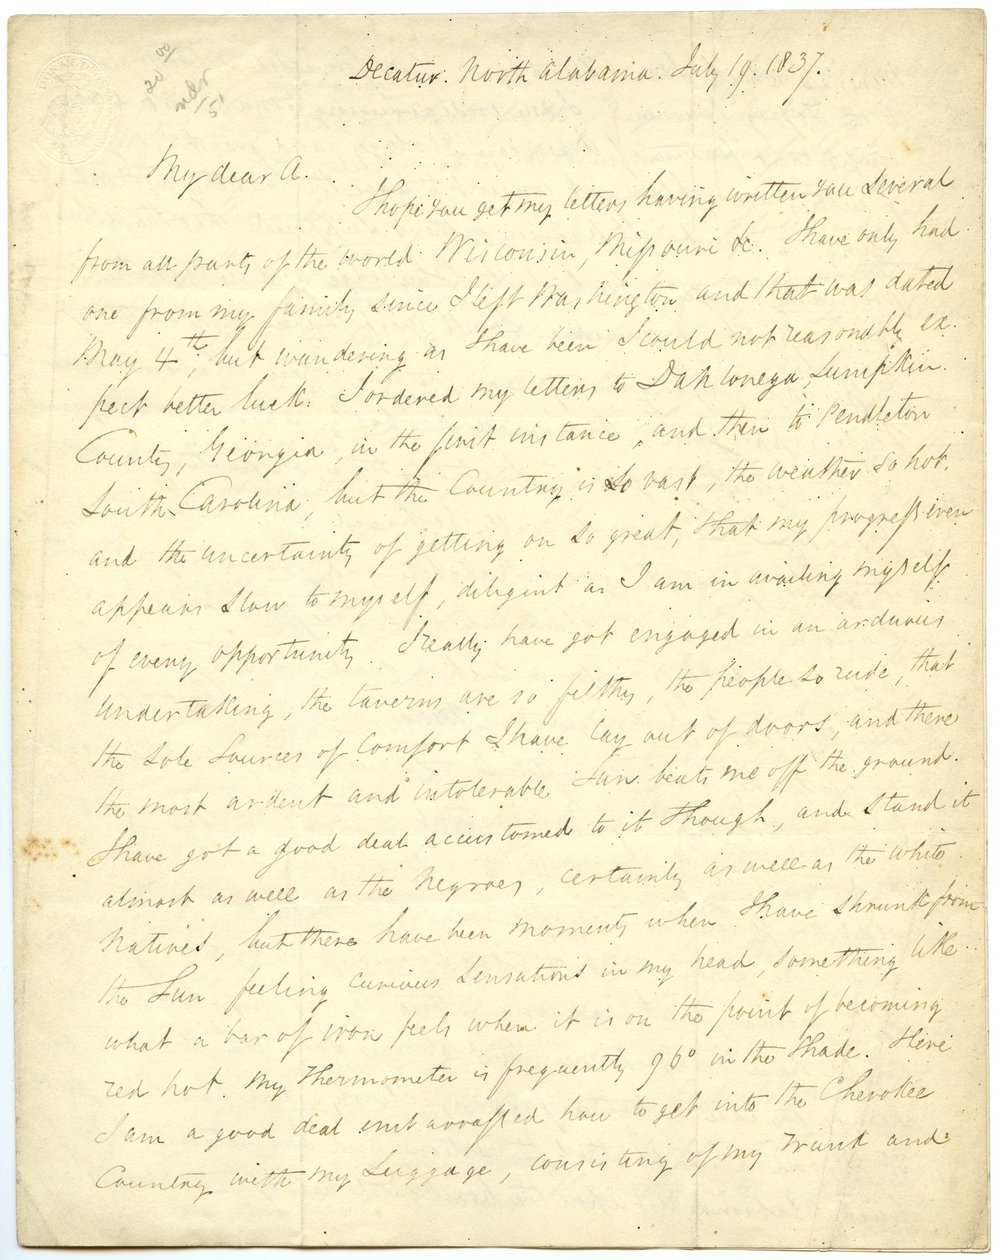 Decatur. North Alabama. July 19. 1837.
My dear A.
I hope you get my letters having written you several
from all parts of the world. Wisconsin, Missouri &c. I have only had
one from my family since I left Washington and that was dated
May 4th but wandering as I have been I could not reasonably ex-
pect better luck. I ordered my letters to Dahlonega, Lumpkin
County, Georgia, in the first instance, and then to Pendleton
South Carolina, but the Country is so vast, the weather so hot,
and the uncertainty of getting on so great, that my progress even
appears slow to myself, diligent as I am in availing myself
of every opportunity. I really have got engaged in an arduous
undertaking, the taverns are so filthy, the people so rude, that
the sole sources of comfort I have lay out of doors, and there
the most ardent and intolerable Sun beats me off the ground.
I have got a good deal accustomed to it though, and stand it
almost as well as the Negroes, certainly as well as the white
Natives, but there have been moments when I have shrunk from
the Sun feeling curious sensations in my head, something like
what a bar of iron feels when it is on the point of becoming
red hot. My Thermometer is frequently 96° in the Shade. Here
I am a good deal embarrassed how to get into the Cherokee
Country with my Luggage, consisting of my Trunk and